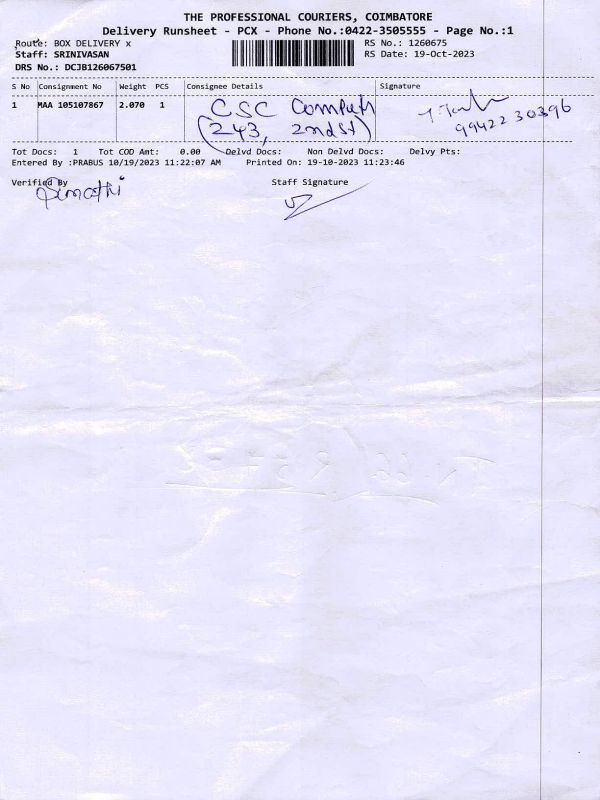 THE PROFESSIONAL COURIERS, COIMBATORE
Delivery Runsheet - PCX - Phone No.:0422-3505555 - Page No.:1
Route: BOX DELIVERY x RS No.: 1260675
Staff: SRINIVASAN RS Date: 19-Oct-2023
DRS No.: DCJB126067501
S No Consignment No Weight PCS Consignee Details Signature
1 MAA 105107867 2.070 1 CSC
(243, 2nd St) 9942230396
Tot Docs: 1 Tot COD Amt: 0.00 Delvd Docs: Non Delvd Docs: Delvy Pts:
Entered By :PRABUS 10/19/2023 11:22:07 AM Printed On: 19-10-2023 11:23:46
Verified By Staff Signature